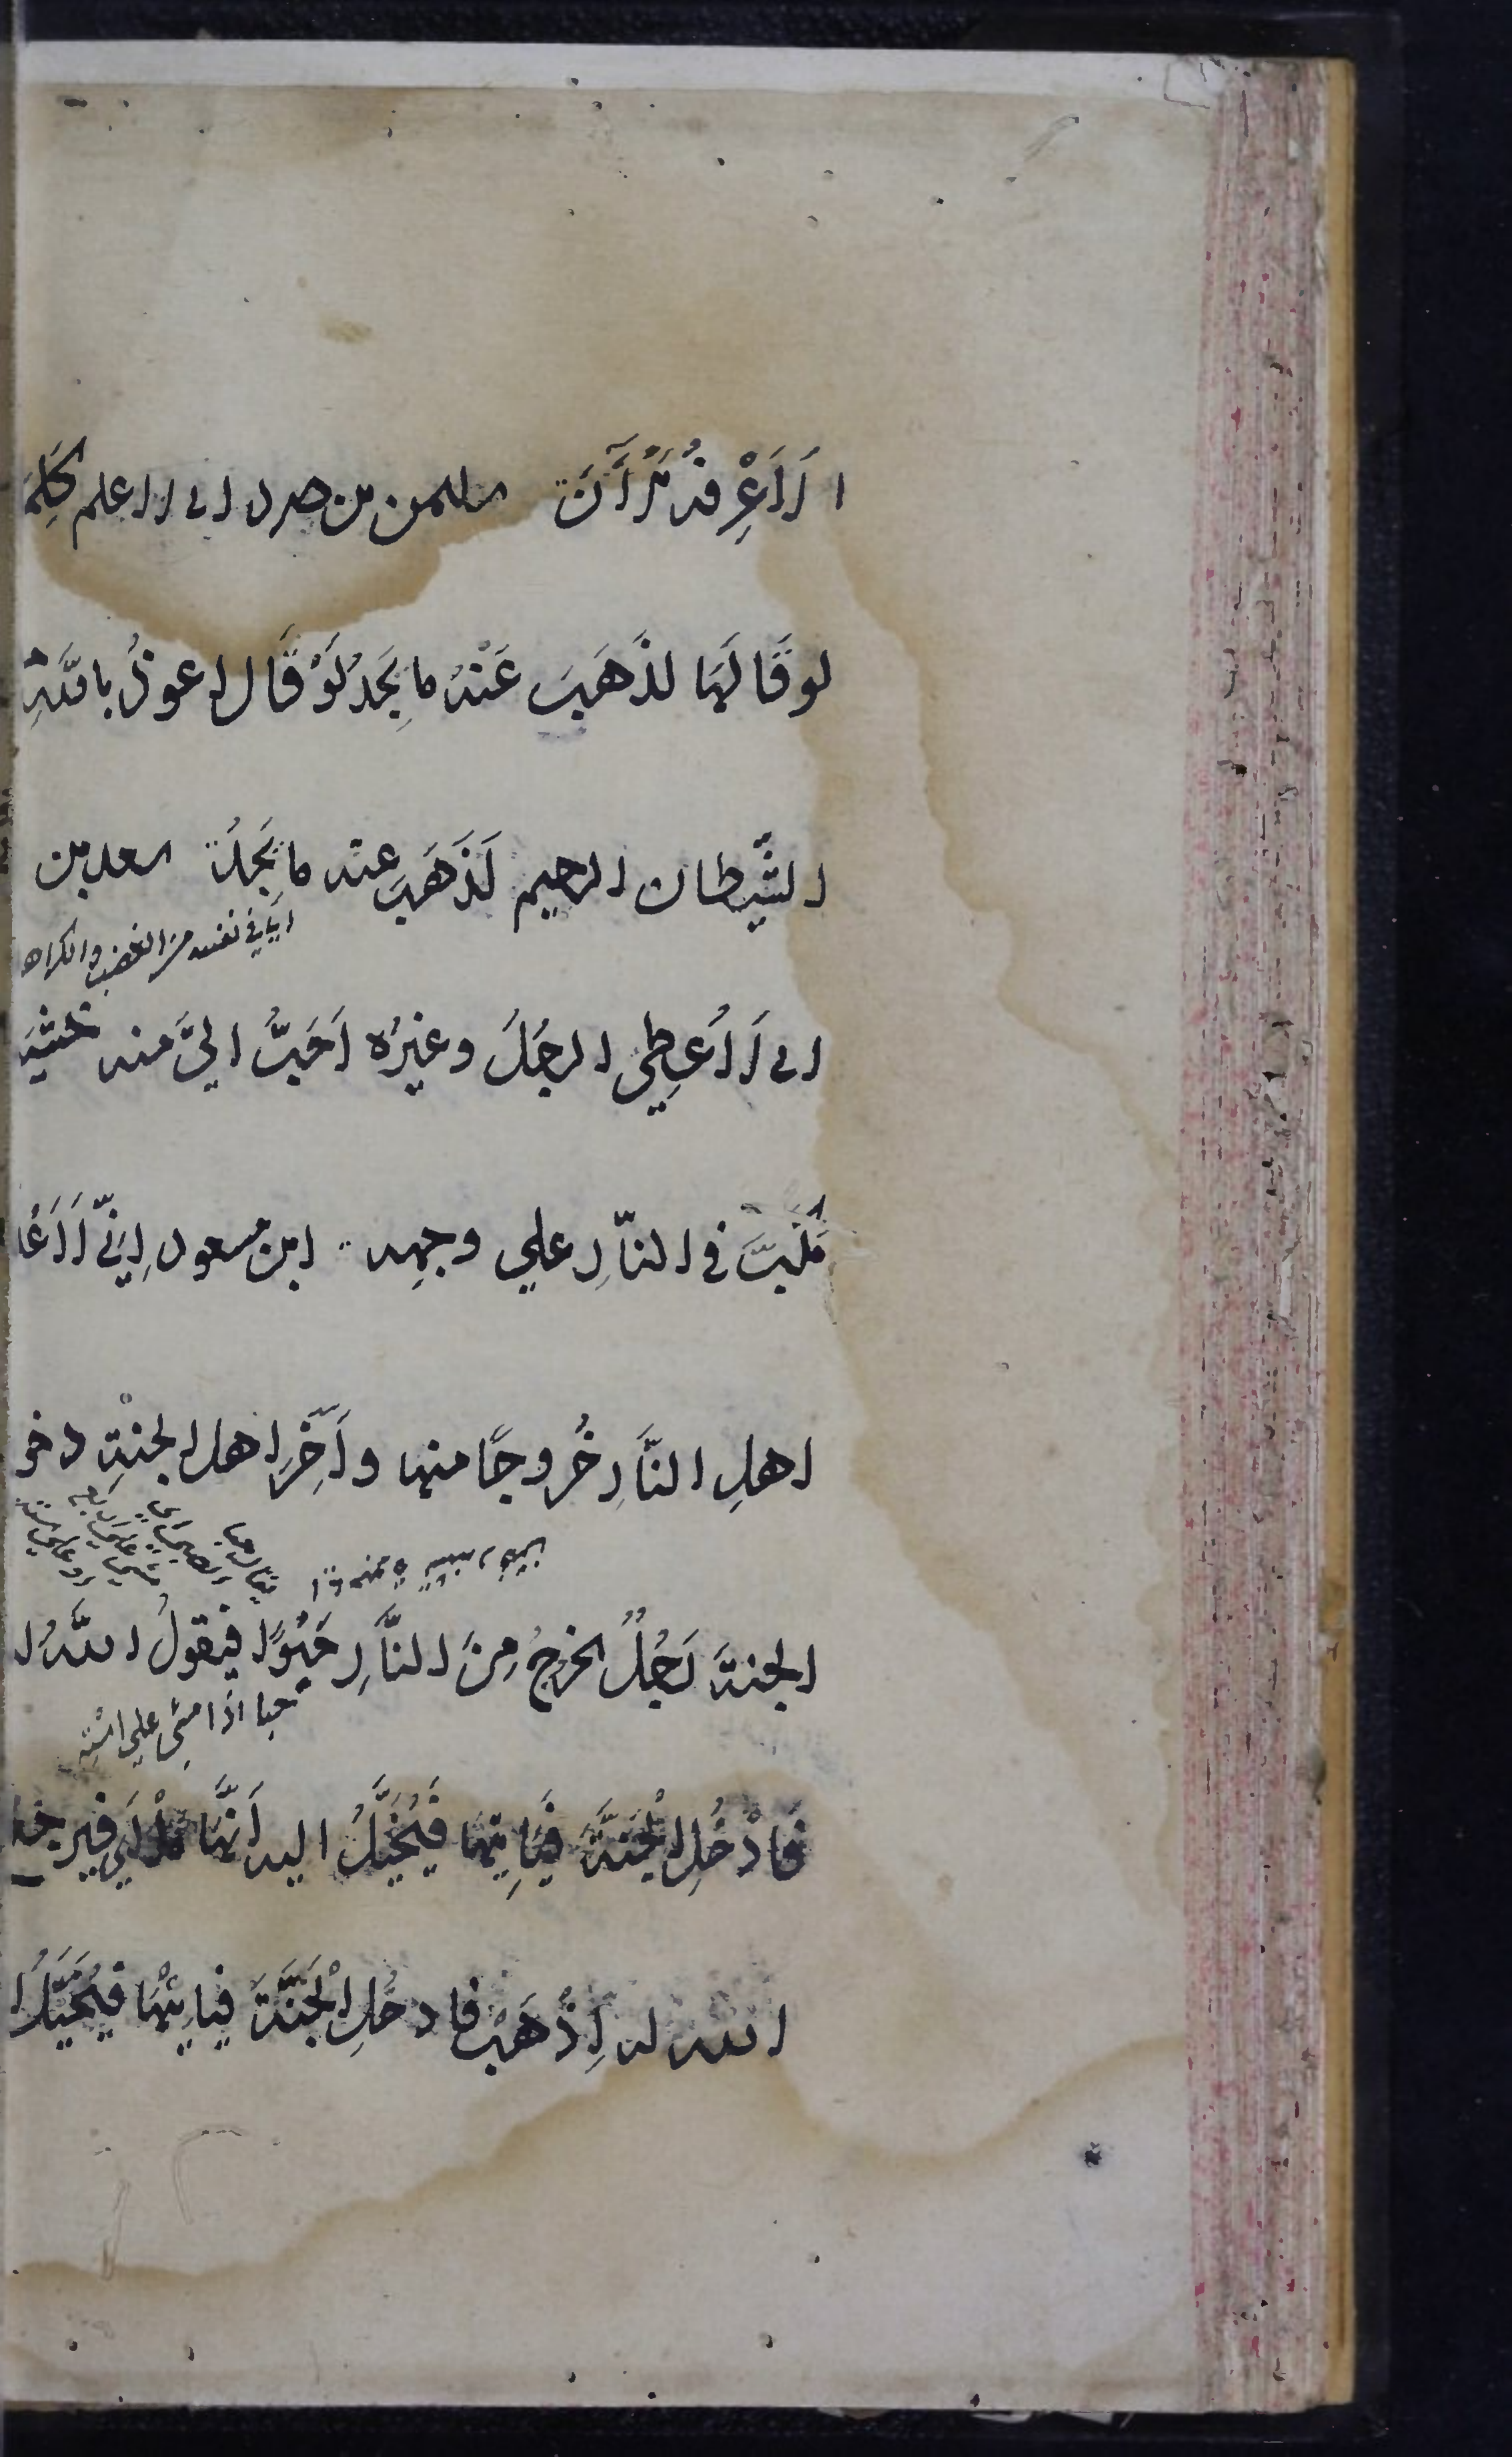 لاَ اَعْرِفُهُ الْآنَ سليمن بن صرد انى لا اعلم كَلِمَة
لو قَالَهَا لذَهَبَ عَنْهُ ما يَجِدُ لَوْ قَال اعوذُ باللّهِ
الشَّيطان الرجيم لَذَهَبَ عنه ما يَجِدُ سعد بن
اي في نفسه من الغضب والكراهة
انى لَاُعطِي الرجُلَ وغيرُه اَحَبُّ اليَّ منه خشيَة
يُكَبَّ في النّارِ علي وجهِه ابن مسعود اِنِّي لَاَعْلَ
اهلِ النَّارِ خُروجًا منها وآخِرَ اهل الجنّةِ دخو
الجنة رَجُلٌ يخرجُ مِنَ النَّارِ حَبْوًا فيقولُ اللّهُ ا
حبا اذا مشي علي استه
فَادْخُلِ الْجَنَّةَ فَيَاتِيهَا فَيُخَيَّلُ اليه اَنَّهَا مَلْاَي فيرجع
الله له اِذْهَبْ فادخُلِ الْجَنَّةَ فيَاتِيْهَا فيُخَيَّلُ ا